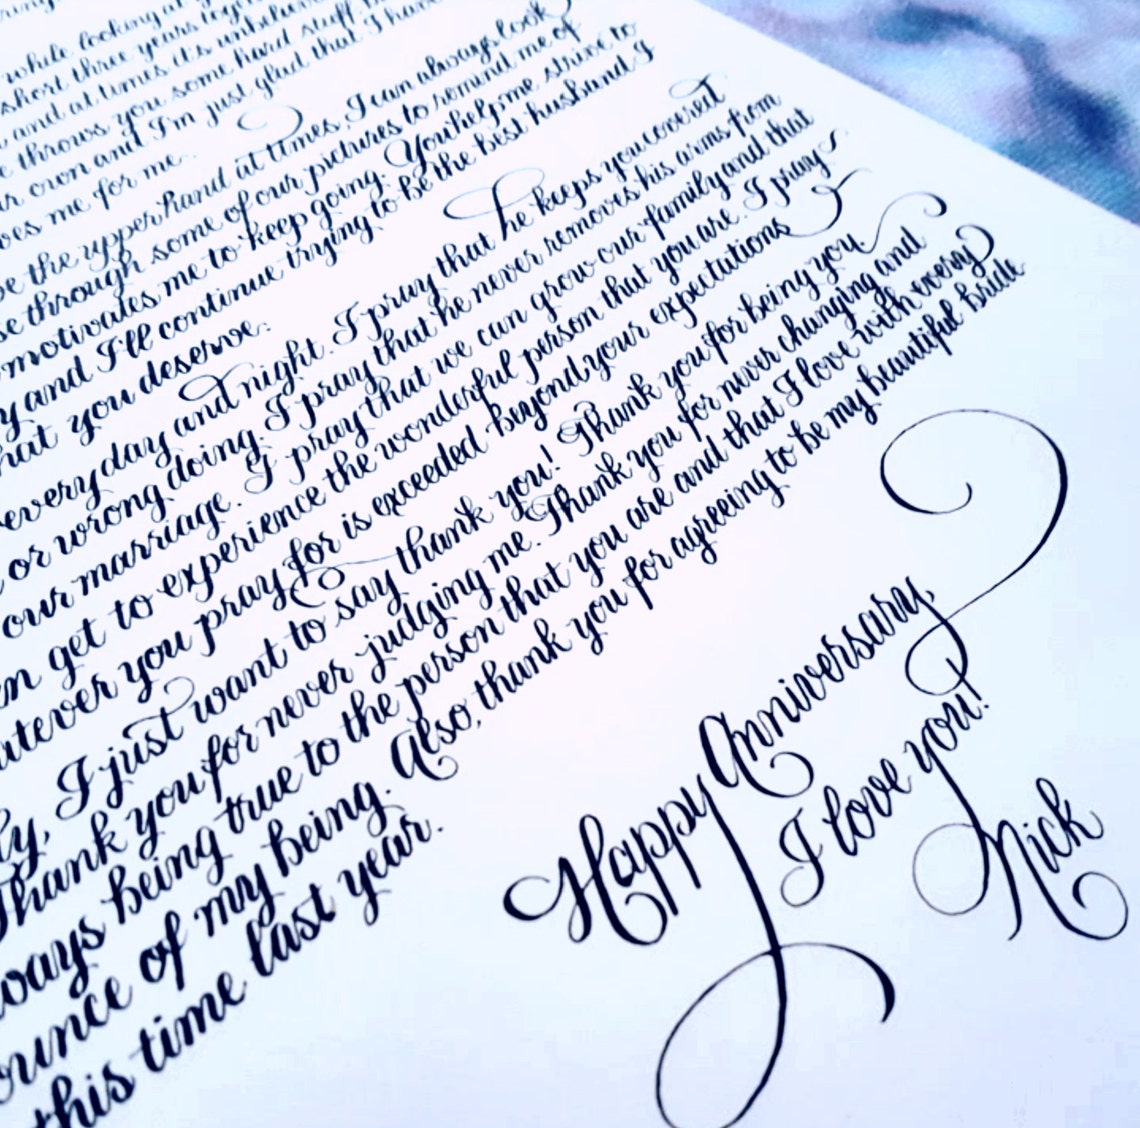 while looking at
short three years
and at times it's
throws you some hard stuff
own and I'm just glad that I have
me for me.
the upper hand at times, I can always look
through some of our pictures to remind me of
motivates me to keep going. You help me strive to
and I'll continue trying to be the best husband I
you deserve.
every day and night. I pray that he keeps you covered
or wrong doing. I pray that he never removes his arms from
our marriage. I pray that we can grow our family and that
get to experience the wonderful person that you are. I pray
you pray for is exceeded beyond your expectations
I just want to say thank you! Thank you for being you,
Thank you for never judging me. Thank you for never changing and
being true to the person that you are and that I love with every
ounce of my being. Also, thank you for agreeing to be my beautiful bride
this time last year.
Happy Anniversary,
I love you!
Nick